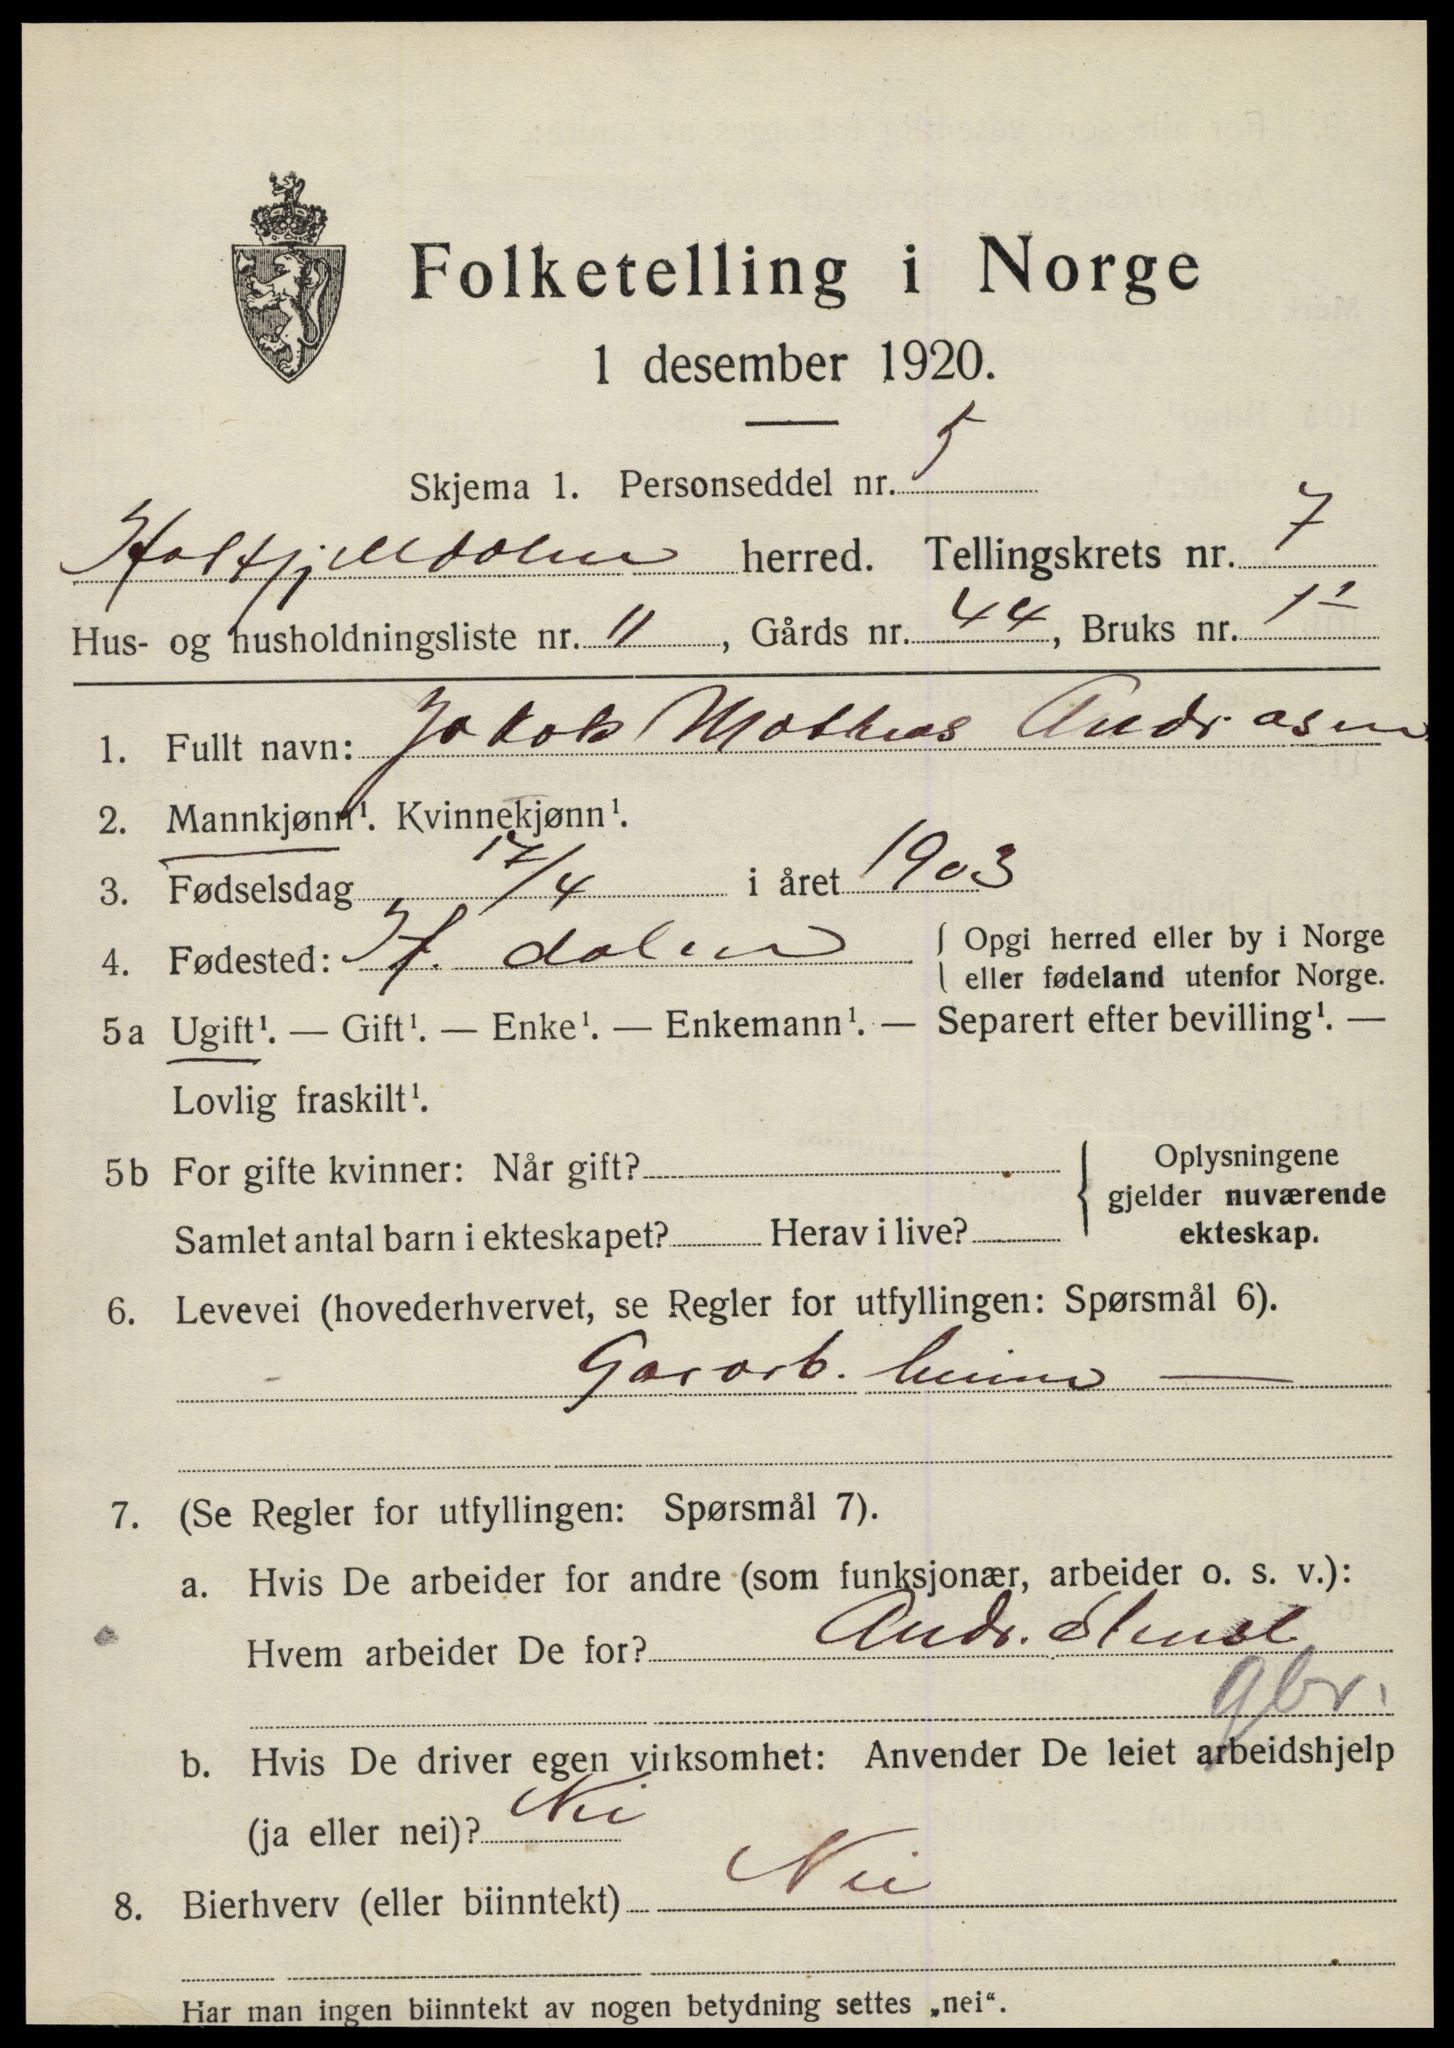 Folketelling i Norge
1 desember 1920.
Skjema 1. Personseddel nr. 5
Hatfjelldalen herred. Tellingskrets nr. 7
Hus- og husholdningsliste nr. 11, Gårds nr. 44, Bruks nr. 1
1. Fullt navn: Jakob Mathias Andr.asen
2. Mannkjønn¹. Kvinnekjønn¹.
3. Fødselsdag 17/4 i året 1903
4. Fødested: Hf. dalen { Opgi herred eller by i Norge
eller fødeland utenfor Norge.
5a Ugift¹. — Gift¹. — Enke¹. — Enkemann¹. — Separert efter bevilling¹. —
Lovlig fraskilt¹.
5b For gifte kvinner: Når gift?
Samlet antal barn i ekteskapet? Herav i live?
{ Oplysningene
gjelder nuværende
ekteskap.
6. Levevei (hovederhvervet, se Regler for utfyllingen: Spørsmål 6).
Gararb. heime —
7. (Se Regler for utfyllingen: Spørsmål 7).
a. Hvis De arbeider for andre (som funksjonær, arbeider o. s. v.):
Hvem arbeider De for? Andr.
gbr.
b. Hvis De driver egen virksomhet: Anvender De leiet arbeidshjelp
(ja eller nei)? Nei
8. Bierhverv (eller biinntekt) Nei
Har man ingen biinntekt av nogen betydning settes „nei“.